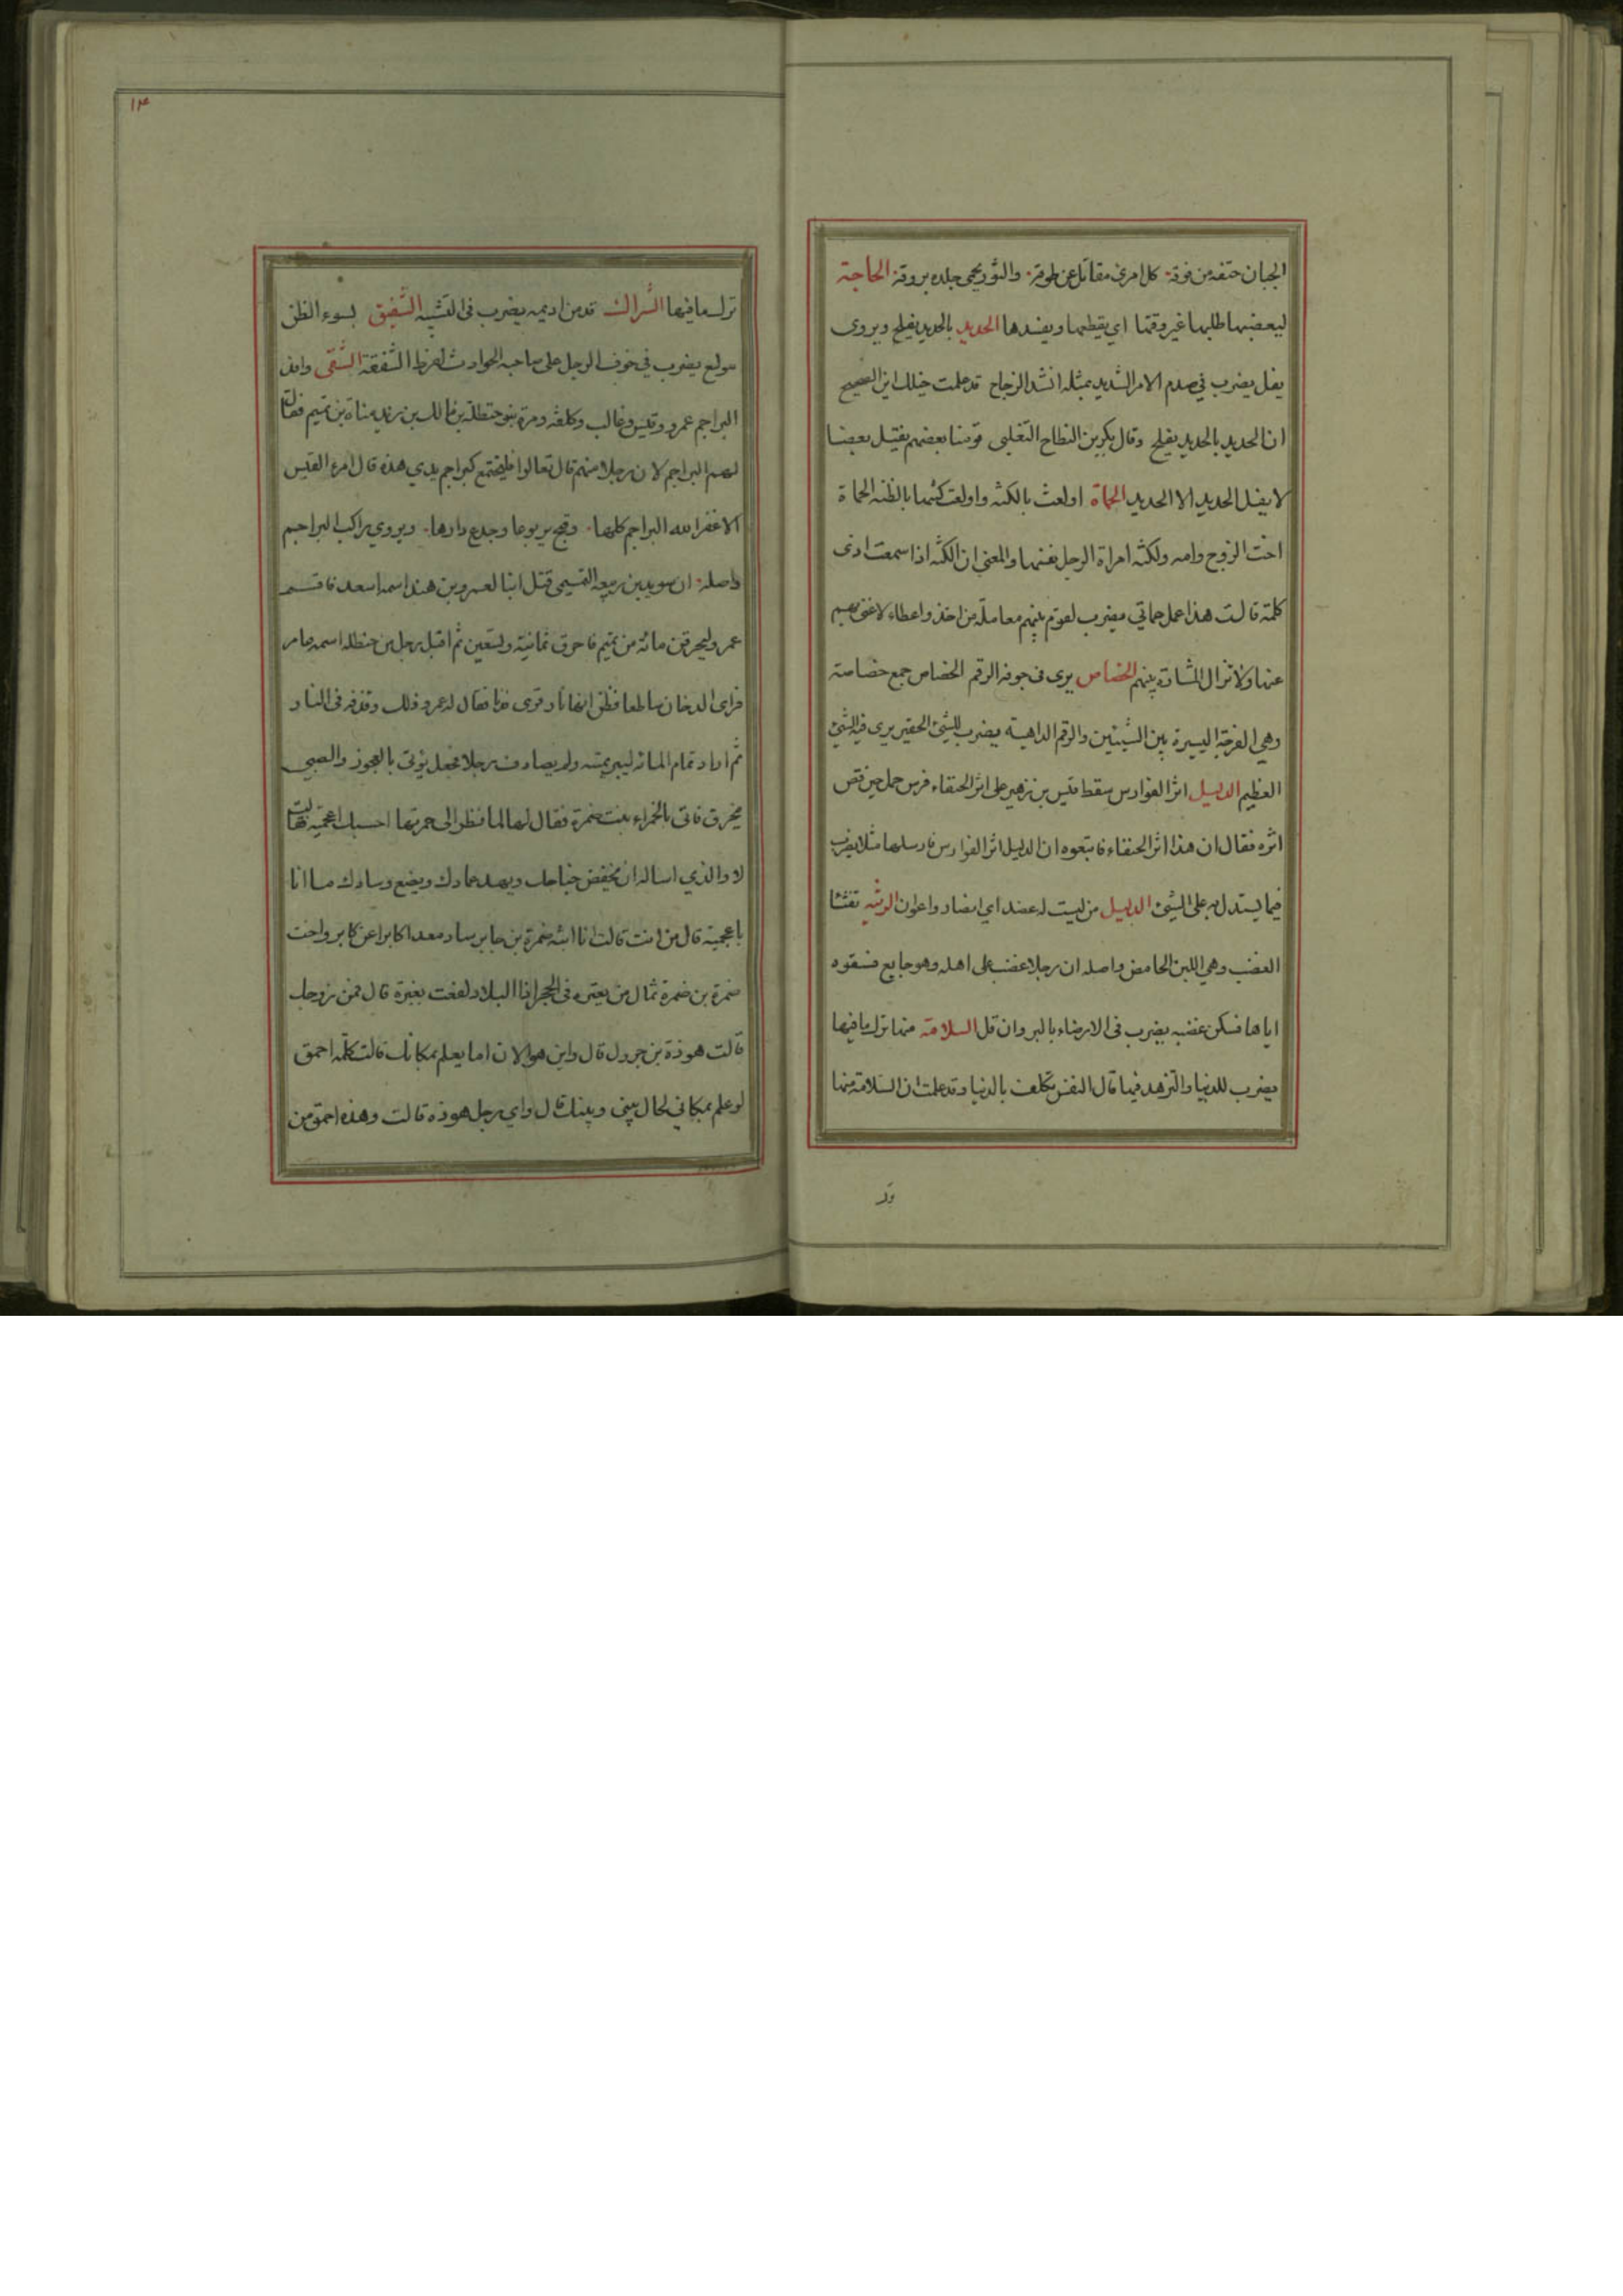 الجبان حتفه من فوقه كل امرئ مقاتل عن طوقه والثور يحمى جلده بروقه الحاجة
ليعضبها طلبها غير وقتها اي يقطعها ويفسدها الحديد بالحديد يفلح ويروى
يفل يضرب في صدم الامر الشديد بمثله انشد الزجاج قد علمت خيلك اين الصحيح
ان الحديد بالحديد يفلح وقال بكر بن النطاح التغلبي قومنا بعضهم يقتل بعضا
لا يفل الحديد الا الحديد الحماة اولعت بالكنه واولعت كنتها بالظنه الحماة
اخت الزوج وامه والكنه امراة الرجل نفسها والمعنى ان الكنه اذا سمعت ادنى
كلمة قالت هذا عمل حماتي يضرب لقوم بينهم معاملة من اخذ واعطاء لا غنى بهم
عنها ولا تزال المشادة بينهم الخصاص يرى في جوفه الرقم الخصاص جمع خصاصة
وهي الفرجة اليسيرة بين الشيئين والرقم الداهية يضرب للشيء الحقير يرى فيه الشيء
العظيم الدليل اثر الفوارس سقط قيس بن زهير على اثر الحنفاء فرس حمل حين قص
اثره فقال ان هذا اثر الحنفاء فاتبعوه ان الدليل اثر الفوارس فارسلها مثلا يضرب
فيما يستدل به على الشيء الدليل من ليست له عضد اي انصار واعوان الرثيه تفثئا
الغضب وهي اللبن الحامض واصله ان رجلا غضب على اهله وهو جايع فسقوه
اياها فسكن غضبه يضرب في الارضاء بالبر وان قل السلامة منها ترك ما فيها
يضرب للدنيا والتزهد فيها قال النفس تكلف بالدنيا وقد علمت ان السلامة منها
١٣
ترك ما فيها الشراك قد من اديمه يضرب في التشبيه الشفيق بسوء الظن
مولع يضرب في خوف الرجل على صاحبه الحوادث لفرط الشفقة الشقى وافد
البراجم عمرو وقيس وغالب وكلفة ومرة بنو حنظلة بن مالك بن زيد مناة بن تميم فقال
لهم البراجم لان رجلا منهم قال تعالوا فلنجتمع كبراجم يدي هذه قال امرء القيس
الا غفر الله البراجم كلها وقبح يربوعا وجدع دارها ويروى راكب البراجم
واصله ان سويد بن ربيعه التميمى قتل ابنا لعمرو بن هند اسمه اسعد فاقسم
عمرو ليحرقن مائه من تميم فاحرق ثمانية وتسعين ثم اقبل رجل من حنظله اسمه عامر
فراى الدخان ساطعا فظن انها نار قرى فقال له عمرو ذلك وقذفه في النار
ثم اراد تمام المائه ليبر يمينه ولم يصادف رجلا فجعل يؤتى بالعجوز والصبي
يخرق فاتى بالحمراء بنت ضمرة فقال لها لما نظر الى حمرتها احسبك اعجميه فقالت
لا والذي اساله ان يخفض جناحك ويهد عمادك ويضع وسادك ما انا
باعجمية قال من انت قالت انا ابنة ضمرة بن جابر ساد معدا كابرا عن كابر واخت
ضمرة بن ضمرة ثمال من يعتره في الحجر اذا البلاد لفعت بغبرة قال فمن زوجك
قالت هوذة بن جرول قال واين هو الان اما يعلم بمكانك قالت كلمة احمق
لو علم بمكاني لحال بيني وبينك قال واي رجل هوذه قالت وهذه احمق من